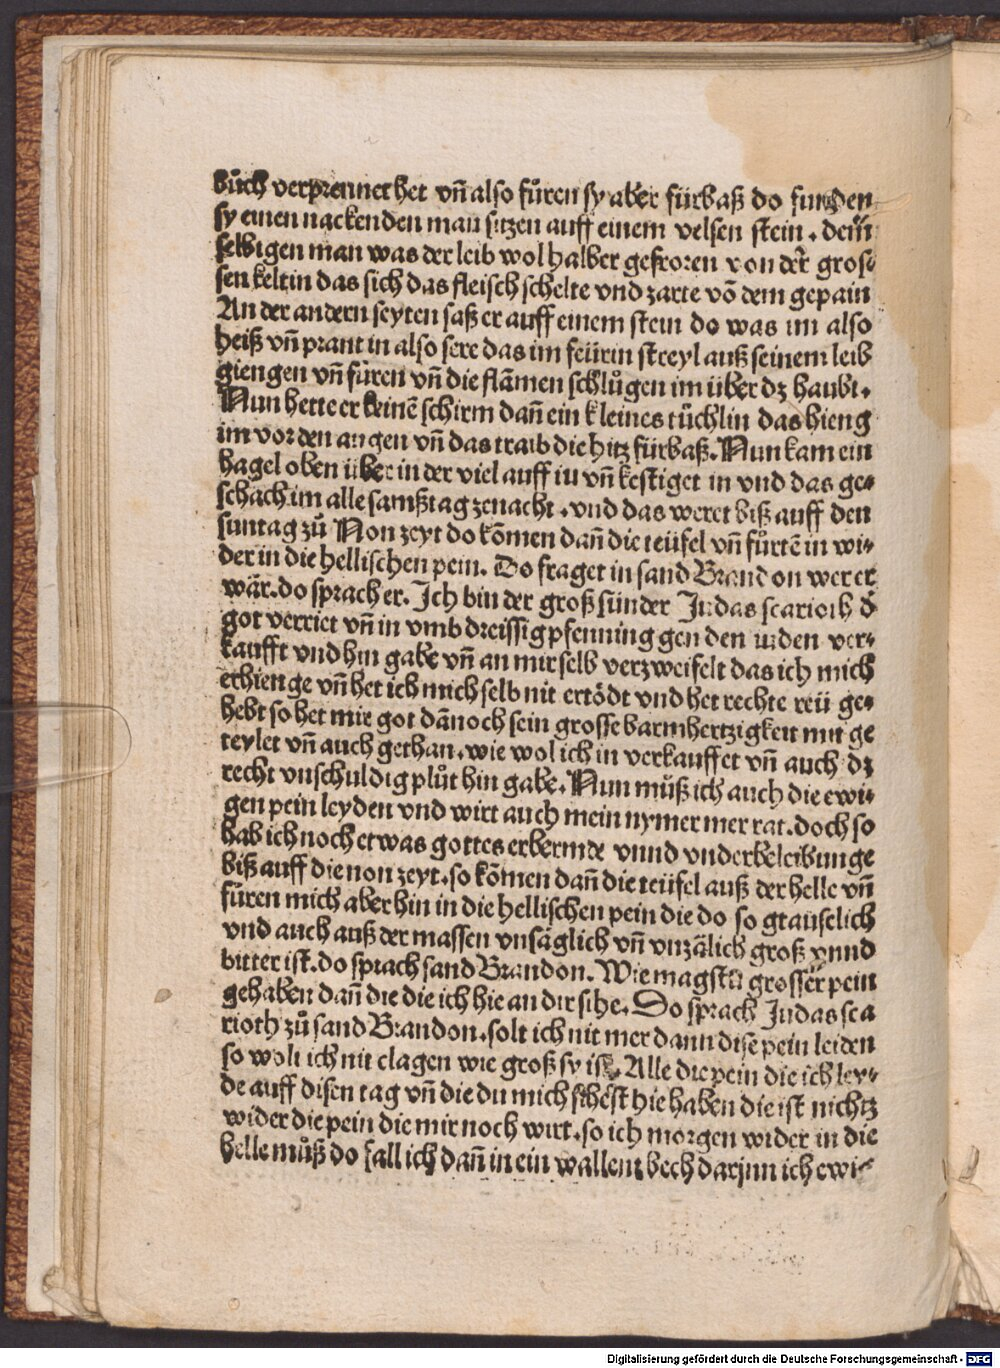 bůch verprennet het vñ also fůren sy aber fürbaß do funden
sy einen nackenden man sitzen auff einem velsen stein . dem
selbigen man was der leib wol halber gefroren von der gros⸗
sen keltin das sich das fleisch schelte vnd zarte võ dem gepain
An der andern seyten saß er auff einem stein do was im also
heiß vñ prant in also sere das im feürin streyl auß seinem leib
giengen vñ fůren vñ die flãmen schlůgen im über dz haubt.
Nun hette er keinẽ schirm dañ ein kleines tüchlin das hieng
im vor den augen vñ das traib die hitz fürbaß. Nun kam ein
hagel oben über in der viel auff in vñ kestiget in vnd das ge⸗
schach im alle samßtag zenacht . vnd das weret biß auff den
suntag zů Non zeyt do kõmen dañ die teüfel vñ fůrtẽ in wi⸗
der in die hellischen pein. Do fraget in sand Brandon wer er
wãr. do sprach er. Ich bin der groß sünder Judas scarioth d̕
got verriet vñ in vmb dreissig pfenning gen den iuden ver⸗
kaufft vnd hin gabe vñ an mir selb verzweifelt das ich mich
erhienge vñ het ich mich selb nit ertödt vnd het rechte reü ge⸗
hebt so het mir got dãnoch sein grosse barmhertzigkeit mit ge
teylet vñ auch gethan . wie wol ich in verkauffet vñ auch dz
recht vnschuldig plůt hin gabe. Nun můß ich auch die ewi⸗
gen pein leyden vnd wirt auch mein nymer mer rat. doch so
hab ich noch etwas gottes erbermde vnnd vnderbeleibunge
biß auff die non zeyt . so kõmen dañ die teüfel auß der helle vñ
füren mich aber hin in die hellischen pein die do so grauselich
vnd auch auß der massen vnsäglich vñ vnzälich groß vnnd
bitter ist. do sprach sand Brandon. Wie magstu grösser pein
gehaben dañ die die ich hie an dir sihe. Do sprach Judas sca
rioth zů sand Brandon . solt ich nit mer dann dise pein leiden
so wolt ich nit clagen wie groß sy ist. Alle die pein die ich ley⸗
de auff disen tag vñ die du mich sihest hie haben die ist nichtz
wider die pein die mir noch wirt . so ich morgen wider in die
helle můß do fall ich dañ in ein wallent bech darjnn ich ewi⸗
Digitalisierung gefördert durch die Deutsche Forschungsgemeinschaft - DFG